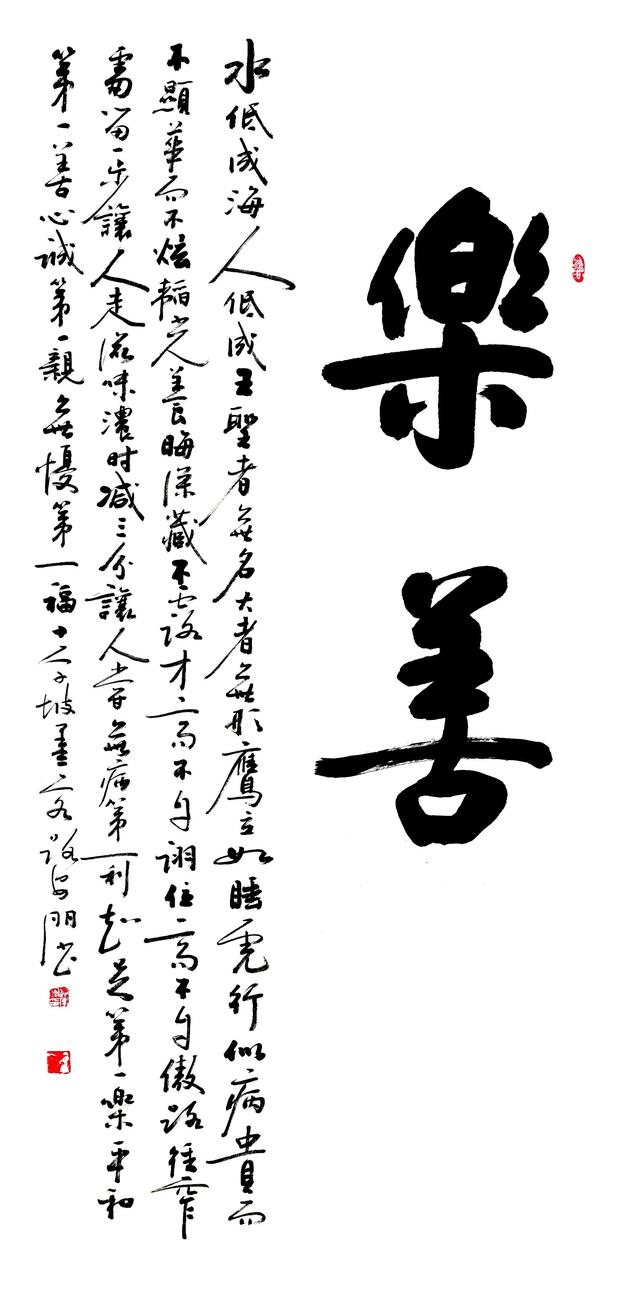 樂善
水低成海人低成王聖者無名大者無形鷹立如睡虎行似病貴而
不顯華而不炫韜光養晦深藏不露才高不自詡位高不自傲路徑窄
需留一步讓人走滋味濃时减三分讓人嘗無病第一利知足第一樂平和
第一善心誠第一親無憂第一福十子坡墨客路安明书